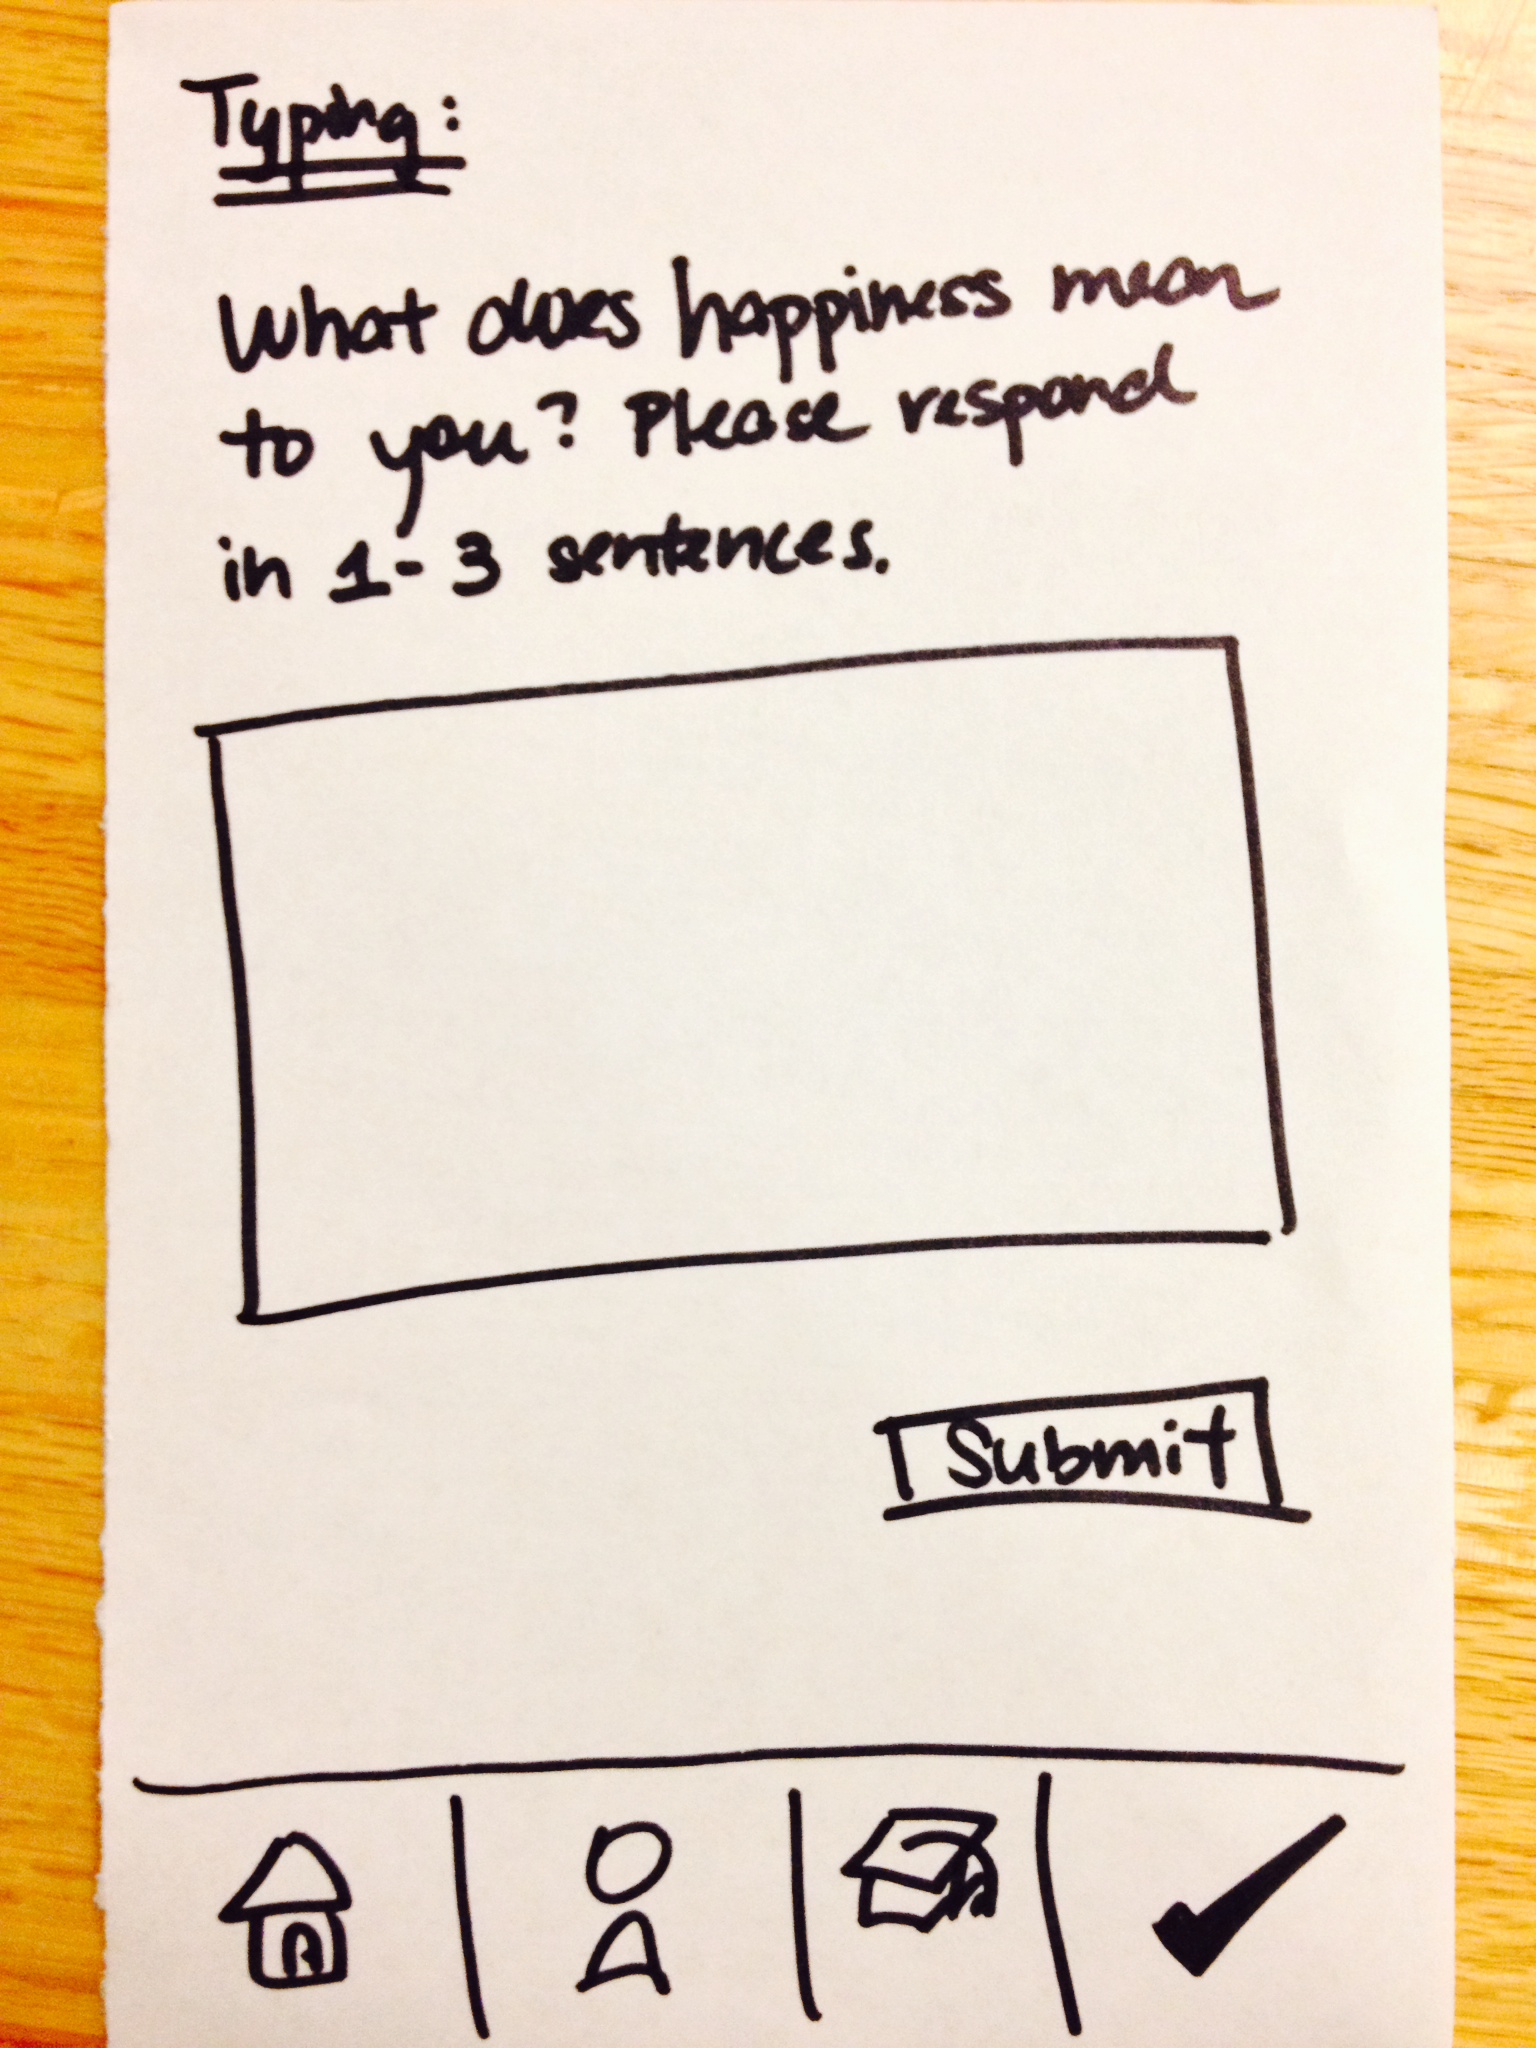 Typing:
What does happiness mean
to you? Please respond
in 1-3 sentences.
Submit